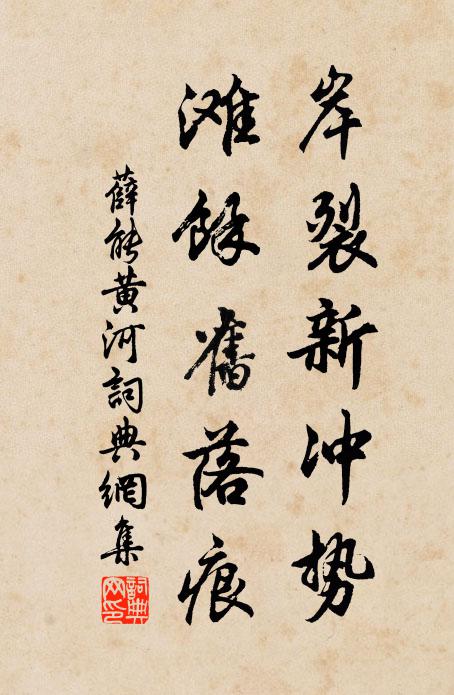 岸裂新冲势
滩餘舊落痕
薛能黄河詞典網集
詞典網印